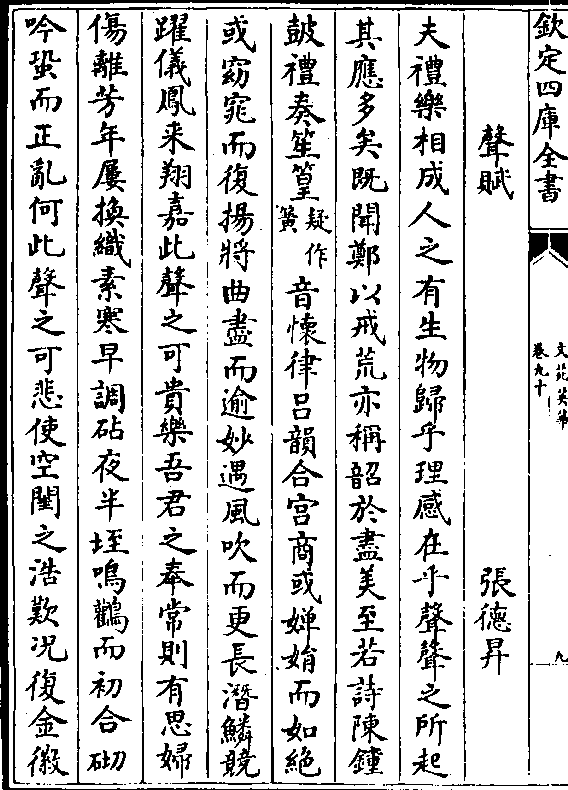 欽定四庫全書
文苑英華
卷九十
九
聲賦
張德昇
夫禮樂相成人之有生物歸乎理感在乎聲聲之所起
其應多矣既聞鄭以戒荒亦稱韶於盡美至若詩陳鍾
鼓禮奏笙篁疑作簧音懷律吕韻合宫商或嬋娟而如絶
或窈窕而復揚將曲盡而逾妙遇風吹而更長潛鱗競
躍儀鳳来翔嘉此聲之可貴樂吾君之奉常則有思婦
傷離芳年屢換織素寒早調砧夜半垤鳴鸛而初合砌
吟蛩而正亂何此聲之可悲使空閨之浩歎况復金徽